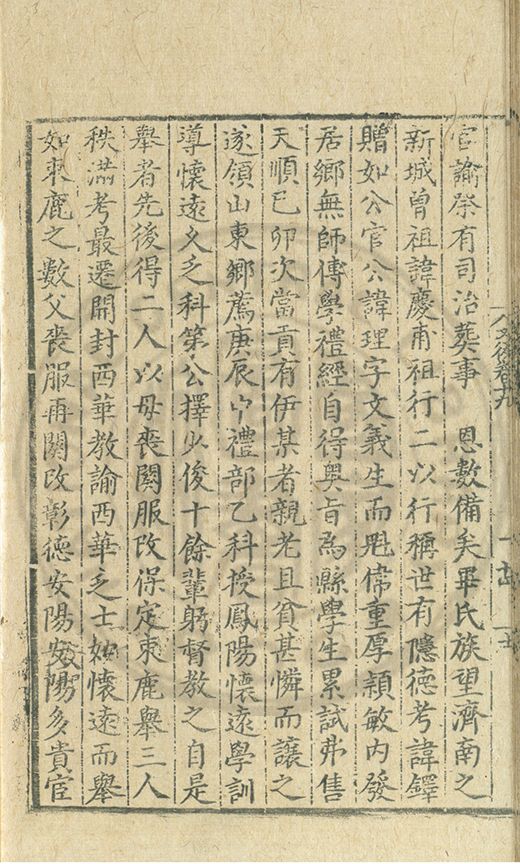 官諭祭有司治葬事　恩數備矣畢氏族望濟南之
新城曾祖諱慶甫祖行二以行稱世有隱德考諱鐸
贈如公官公諱理字文義生而魁偉重厚穎敏內發
居鄉無師傅學禮經自得奧旨為縣學生累試弗售
天順己卯次當貢有伊某者親老且貧甚憐而讓之
遂領山東鄉薦庚辰中禮部乙科授鳳陽懷遠學訓
導懷遠久乏科第公擇少俊十餘輩躬督教之自是
舉者先後得二人以母喪闋服改保定束鹿舉三人
秩滿考最遷開封西華教諭西華之士如懷遠而舉
如束鹿之數父喪服再闋改彰德安陽安陽多貴宦